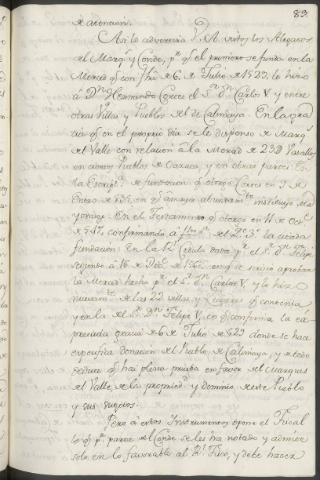 89.
de atencion.
Asi lo advertirá V. A. vistos los Alegatos
del Marq.s y Conde, p.r q.e el primero se funda en la
Merced q.e con fha de 6 de Julio de 1529 le hizo
á D.n Hernando Cortes el S.or D.n Carlos V. y entre
otras Villas y Pueblos el de Calimaya. En la gra
cia q.e en el proprio dia se le dispensó de Marq.s
del Valle con relacion á la Merced de 23D Vasallos
en cinco Pueblos de Oaxaca, y en otras partes. En
la Escrip.ra de fundacion q.e otorgó Cortes en 9 de
Enero de 535, en q.e
mayorazgo. En el Testamento q.e otorgó en 11 de Oct.e
de 547 confirmando á la citada
fundacion. En la R.l Cedula dada p.r el S.or D.n Felipe
Segundo á 16 de Dic.e de 1562 en q.e se sirvió aprobar
la Merced hecha p.r el S.or D.n Carlos V. y la hizo
nuevam.te de las 22 villas y Lugares q.e contenia
y en la del S.or D.n Felipe V. en q.e confirma la ex-
presada gracia de 6 de Julio de 529 donde se hace
expresisima donacion del Pueblo de Calimaya, y de todo
deduce q.e hai plena prueba en favor del Marques
del Valle de la propied.d y dominio de este Pueblo
y sus sugetos.
Pero á estos Instrumentos opone el Fiscal
lo q.e p.r parte del Conde se les ha notado y admite
solo en lo favorable al R.l Fisco, y debe hacer